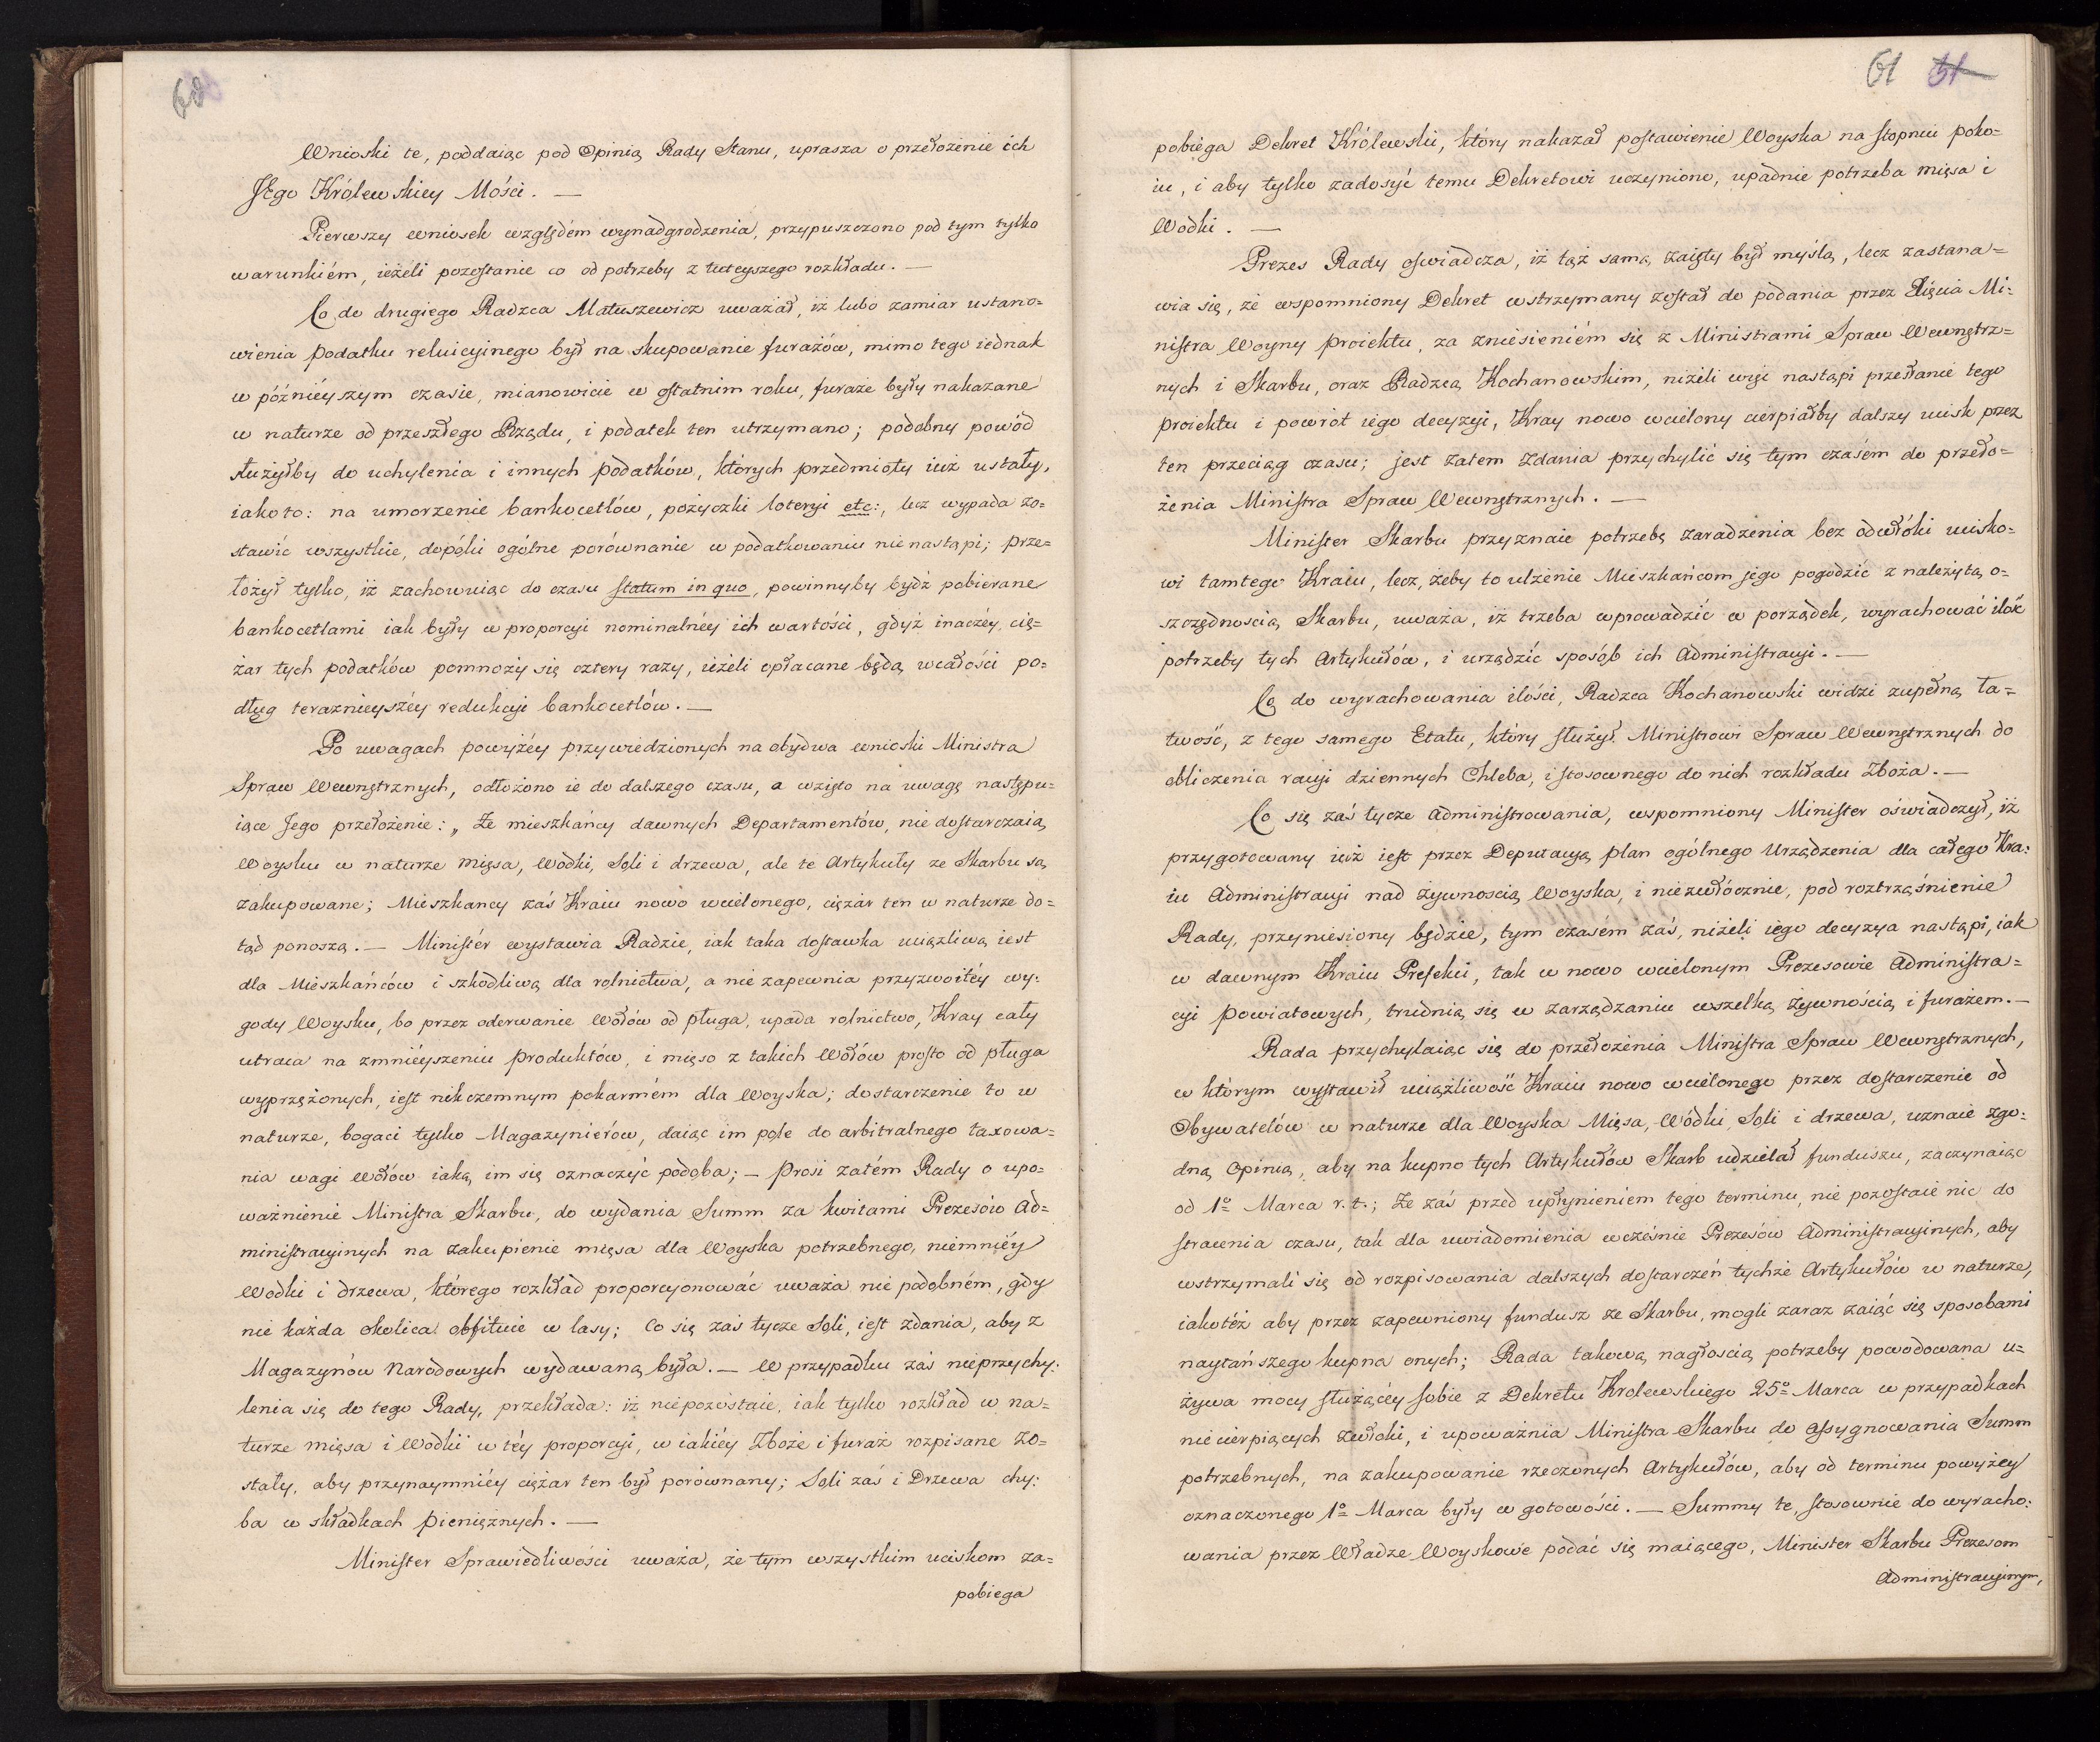 60
Wnioski te, poddaiąc pod Opinią Rady Stanu, uprasza o przełożenie ich
JEgo Królewskiey Mości. —
Pierwszy wniosek względém wynadgrodzenia, przypuszczono pod tym tylko
warunkiém, ieżeli pozostanie co od potrzeby z tuteyszego rozkładu. —
Co do drugiego Radzca Matuszewicz uważał, iż lubo zamiar ustano=
wienia podatku reluicyinego był na skupowanie furażów, mimo tego iednak
w późniéyszym czasie, mianowicie w ostatnim roku, furaże były nakazane
w naturze od przeszłego Rządu, i podatek ten utrzymano; podobny powód
służyłby do uchylenia i innych podatków, których przedmioty iuż ustały,
iako to: na umorzenie bankocetlów, pożyczki loteryi etc:, lecz wypada zo=
stawić wszystkie, dopóki ogólne porównanie w podatkowaniu nie nastąpi; prze=
łożył tylko, iż zachowuiąc do czasu statum in quo, powinnyby bydź pobierane
bankocetlami iak były w proporcyi nominalnéy ich wartości, gdyż inaczéy, cię=
żar tych podatków pomnoży się cztery razy, ieżeli opłacane będą wcałości po=
dług teraznieyszéy redukcyi bankocetlów. —
Po uwagach powyżéy przywiedzionych na obydwa wnioski Ministra
Spraw Wewnętrznych, odłożono ie do dalszego czasu, a wzięto na uwagę następu=
iące Jego przełożenie: „Że mieszkańcy dawnych Departamentów, nie dostarczaią
Woysku w naturze mięsa, Wodki, Soli i drzewa, ale te Artykuły ze Skarbu są
zakupowane; Mieszkancy zaś Kraiu nowo wcielonego, ciężar ten w naturze do=
tąd ponoszą. — Ministér wystawia Radzie, iak taka dostawka uciążliwą iest
dla Mieszkańców i szkodliwą dla rolnictwa, a nie zapewnia przyzwoitéy wy:
gody Woysku, bo przez oderwanie Wołów od pługa, upada rolnictwo, Kray cały
utraca na zmnieyszeniu produktów, i mięso z takich Wołów prosto od pługa
wyprzężonych, iest nikczemnym pokarmém dla Woyska; dostarczenie to w
naturze, bogaci tylko Magazynierów, daiąc im pole do arbitralnego taxowa=
nia wagi Wołów iaką im się oznaczyć podoba; — Prosi zatém Rady o upo=
ważnienie Ministra Skarbu, do wydania Summ za kwitami Prezesów Ad=
ministracyinych na zakupienie mięsa dla Woyska potrzebnego, niemniéy
Wodki i drzewa, którego rozkład proporcyonować uważa nie podobném, gdy
nie każda okolica obfituie w lasy; Co się zaś tycze Soli, iest zdania, aby z
Magazynów Narodowych wydawaną była. — W przypadku zaś nieprzychy:
lenia się do tego Rady, przekłada: iż niepozostaie, iak tylko rozkład w na=
turze mięsa i Wodki w téy proporcyi, w iakiéy Zboże i furaż rozpisane zo=
stały, aby przynaymniéy ciężar ten był porównany; Soli zaś i Drzewa chy:
ba w składkach pieniężnych. —
Minister Sprawiedliwości uważa, że tym wszystkim uciskom za=
pobiega
61 51
pobiega Dekret Królewski, który nakazał postawienie Woyska na stopniu poko=
iu, i aby tylko zadosyć temu Dekretowi uczyniono, upadnie potrzeba mięsa i
Wodki. —
Prezes Rady oswiadcza, iż tąż samą zaięty był myślą, lecz zastana=
wia się, że wspomniony Dekret wstrzymany został do podania przez Xięcia Mi=
nistra Woyny proiektu, za zniesieniém się z Ministrami Spraw Wewnętrz=
nych i Skarbu, oraz Radzcą Kochanowskim, niżeli więc nastąpi przesłanie tego
proiektu i powrót iego decyzyi, Kray nowo wcielony cierpiałby dalszy ucisk przez
ten przeciąg czasu; jest zatem zdania przychylić się tym czasém do przeło=
żenia Ministra Spraw Wewnętrznych. —
Minister Skarbu przyznaie potrzebę zaradzenia bez odwłóki ucisko=
wi tamtego Kraiu, lecz, żeby to ulżenie Mieszkańcom jego pogodzić z należytą o=
szczędnoscią Skarbu, uważa, iż trzeba wprowadzić w porządek, wyrachować ilość
potrzeby tych Artykułów, i urządzić sposób ich Administracyi. —
Co do wyrachowania ilości, Radzca Kochanowski widzi zupełną ła=
twość, z tego samego Etatu, który służył Ministrowi Spraw Wewnętrznych do
obliczenia racyi dziennych Chleba, i stosownego do nich rozkładu Zboża. —
Co się zaś tycze administrowania, wspomniony Minister oświadczył, iż
przygotowany iuż iest przez Deputacyą plan ogólnego Urządzenia dla całego Kra:
iu Administracyi nad żywnoscią Woyska, i niezwłócznie, pod roztrząśnienie
Rady, przyniesiony będzie, tym czasém zaś, niżeli iego decyzya nastąpi, iak
w dawnym Kraiu Prefekci, tak w nowo wcielonym Prezesowie Administra=
cyi Powiatowych, trudnią się w zarządzaniu wszelką żywnością i furażem. —
Rada przychylaiąc się do przełożenia Ministra Spraw Wewnętrznych,
w którym wystawił uciążliwość Kraiu nowo wcielonego przez dostarczenie od
Obywatelów w naturze dla Woyska Mięsa, Wódki, Soli i drzewa, uznaie zgo=
dną Opinią, aby na kupno tych Artykułów Skarb udzielał funduszu, zaczynaiąc
od 1º Marca r. t.; Że zaś przed upłynieniem tego terminu, nie pozostaie nic do
stracenia czasu, tak dla uwiadomienia wcześnie Prezesów Administracyinych, aby
wstrzymali się od rozpisowania dalszych dostarczeń tychże Artykułów w naturze,
iakotéż aby przez zapewniony fundusz ze Skarbu, mogli zaraz zaiąć się sposobami
naytańszego kupna onych; Rada takową nagłoscią potrzeby powodowana u=
żywa mocy służącéy sobie z Dekretu Krolewskiego 25º Marca w przypadkach
niecierpiących zwłoki, i upoważnia Ministra Skarbu do Assygnowania Summ
potrzebnych, na zakupowanie rzeczonych Artykułów, aby od terminu powyżey
oznaczonego 1º Marca były w gotowości. — Summy te, stosownie do wyracho:
wania przez Władze Woyskowe podać się maiącego, Minister Skarbu Prezesom
Administracyinym,